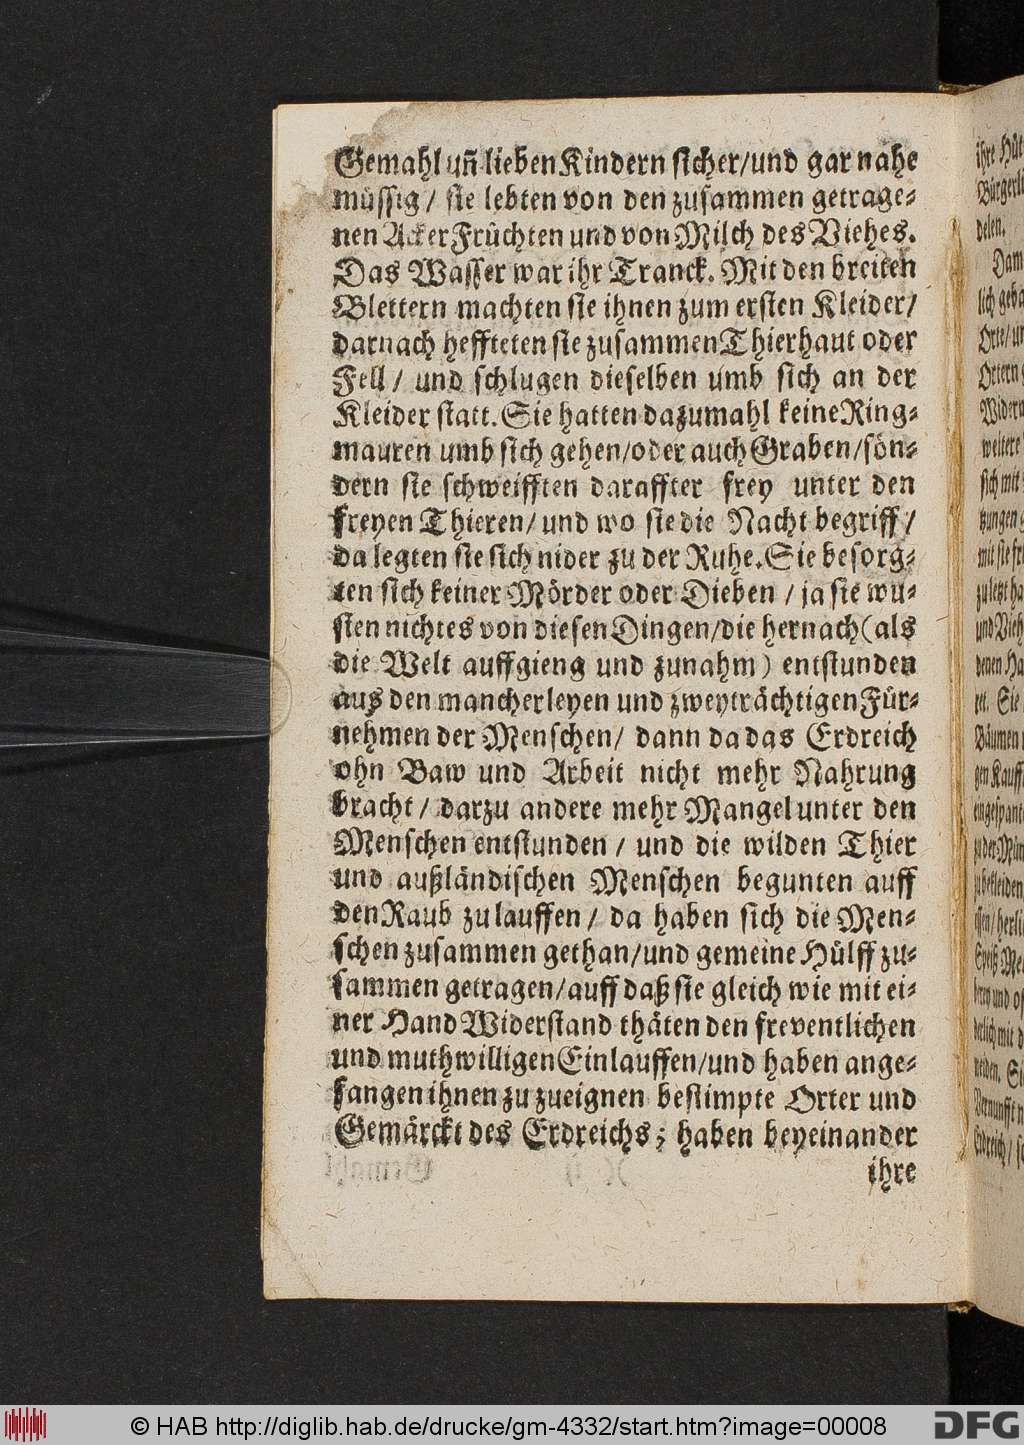 Gemahl uñ lieben Kindern sicher/und gar nahe
müssig / sie lebten von den zusammen getrage-
nen Acker Früchten und von Milch des Viehes.
Das Wasser war ihr Tranck. Mit den breiten
Blettern machten sie ihnen zum ersten Kleider/
darnach heffteten sie zusammen Thierhaut oder
Fell / und schlugen dieselben umb sich an der
Kleider statt. Sie hatten dazumahl keine Ring-
mauren umb sich gehen/oder auch Graben/sön-
dern sie schweifften daraffter frey unter den
freyen Thieren/ und wo sie die Nacht begriff/
da legten sie sich nider zu der Ruhe. Sie besorg-
ten sich keiner Mörder oder Dieben / ja sie wu-
sten nichtes von diesen Dingen/die hernach (als
die Welt auffgieng und zunahm) entstunden
auß den mancherleyen und zweyträchtigen Für-
nehmen der Menschen/ dann da das Erdreich
ohn Baw und Arbeit nicht mehr Nahrung
bracht / darzu andere mehr Mangel unter den
Menschen entstunden / und die wilden Thier
und außländischen Menschen begunten auff
den Raub zu lauffen / da haben sich die Men-
schen zusammen gethan/und gemeine Hülff zu-
sammen getragen/auff daß sie gleich wie mit ei-
ner Hand Widerstand thäten den freventlichen
und muthwilligen Einlauffen/und haben ange-
fangen ihnen zu zueignen bestimpte Orter und
Gemärckt des Erdreichs; haben beyeinander
ihre
© HAB http://diglib.hab.de/drucke/gm-4332/start.htm?image=00008
DFG